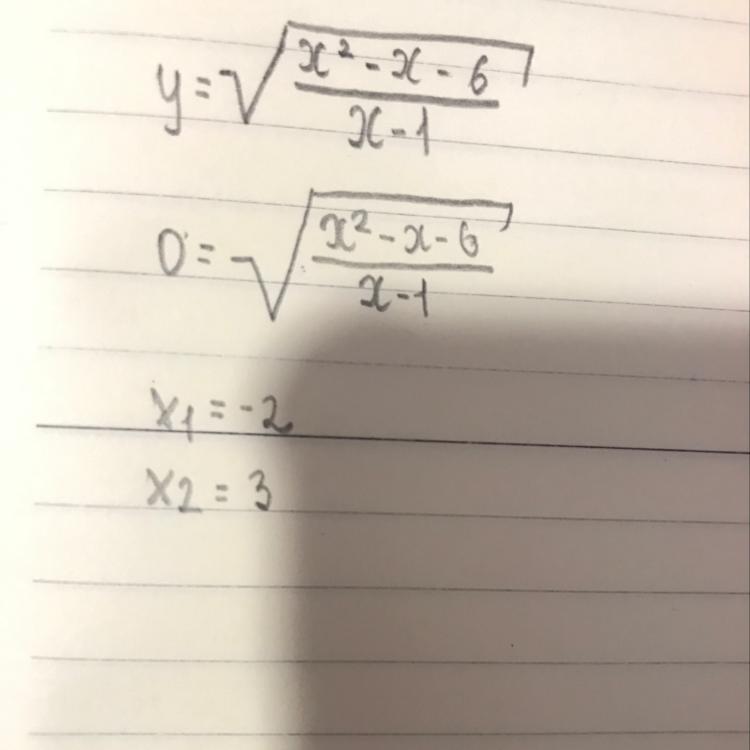 y = √((x² - x - 6)/(x - 1))
0 = √((x² - x - 6)/(x - 1))
x1 = -2
x2 = 3